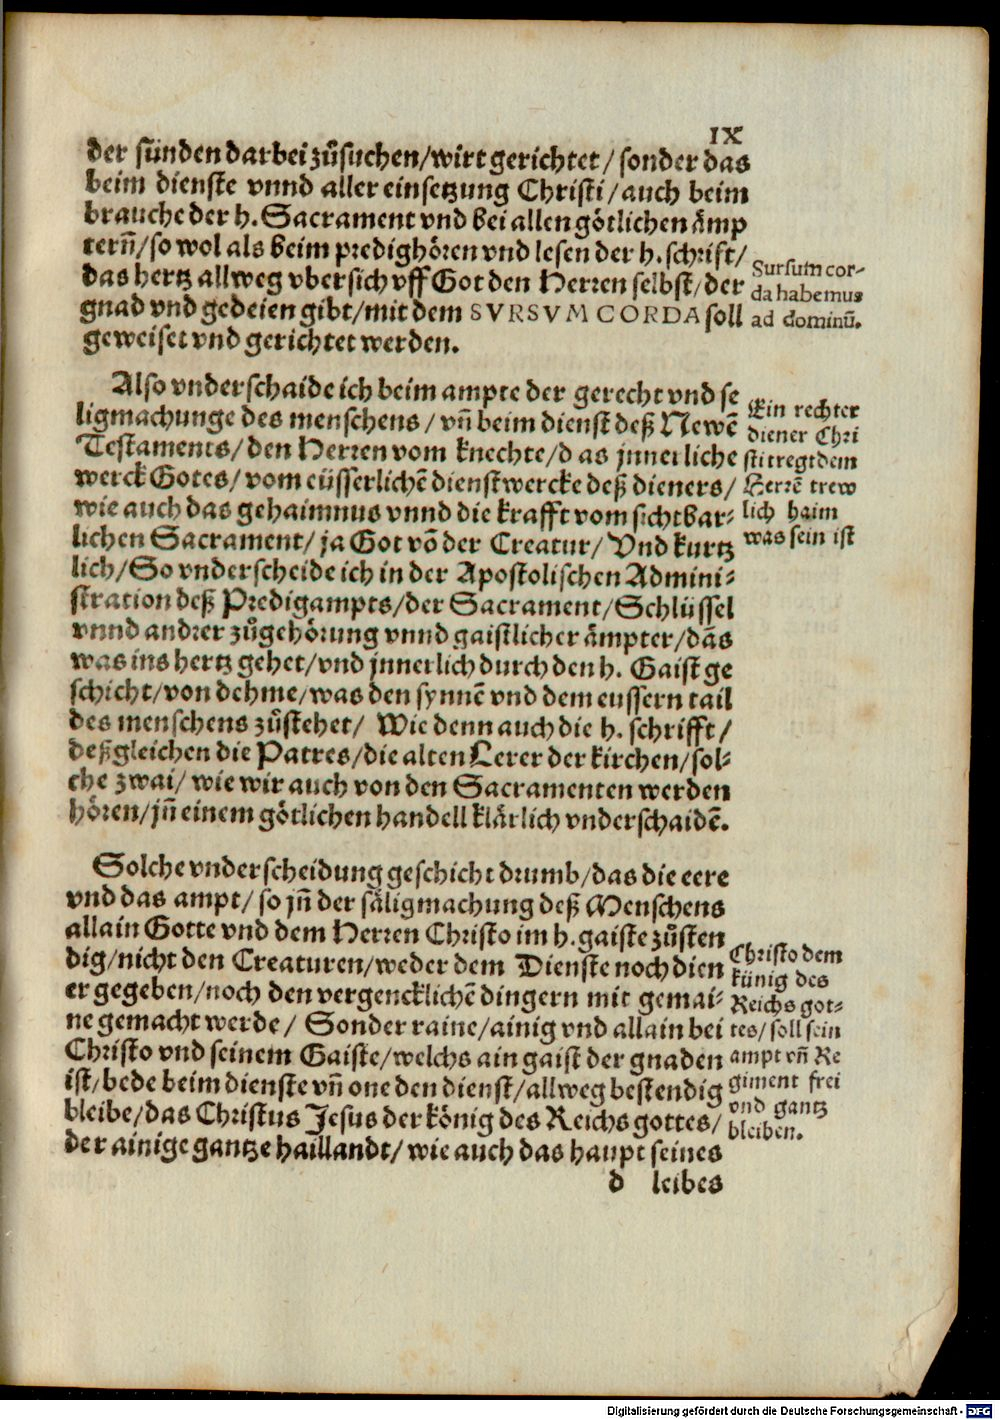 IX
der sünden darbei zůsuchen/wirt gerichtet/ sonder das
beim dienste vnnd aller einsetzung Christi/auch beim
brauche der h. Sacrament vnd bei allen götlichen ämp
tern̄/so wol als beim predighören vnd lesen der h. schrift/
das hertz allweg vbersich vff Got den Herren selbst/der
gnad vnd gedeien gibt/mit dem SVRSVM CORDA soll
geweiset vnd gerichtet werden.
Sursum cor-
da habemus
ad dominū.
Also vnderschaide ich beim ampte der gerecht vnd se
ligmachunge des menschens/vn̄ beim dienst deß Newē
Testaments/den Herren vom knechte/d as jnnerliche
werck Gotes/vom eüsserlichē dienstwercke deß dieners/
wie auch das gehaimnus vnnd die krafft vom sichtbar-
lichen Sacrament/ja Got vō der Creatur/Vnd kurtz
lich/So vnderscheide ich in der Apostolischen Admini-
stration deß Predigampts/der Sacrament/Schlüssel
vnnd andrer zůgehörung vnnd gaistlicher ämpter/das
was ins hertz gehet/vnd jnnerlich durch den h. Gaist ge
schicht/von dehme/was den synnē vnd dem eussern tail
des menschens zůstehet/ Wie denn auch die h. schrifft/
deßgleichen die Patres/die alten Lerer der kirchen/sol-
che zwai/wie wir auch von den Sacramenten werden
hören/jn̄ einem götlichen handell klärlich vnderschaidē.
Ein rechter
diener Chri
sti tregt dem
Herrē trew
lich haim
was sein ist
Solche vnderscheidung geschicht drumb/das die eere
vnd das ampt/so jn̄ der säligmachung deß Menschens
allain Gotte vnd dem Herren Christo im h. gaiste zůsten
dig/nicht den Creaturen/weder dem Dienste noch dien
er gegeben/noch den vergencklichē dingern mit gemai-
ne gemacht werde/ Sonder raine/ainig vnd allain bei
Christo vnd seinem Gaiste/welchs ain gaist der gnaden
ist/bede beim dienste vn̄ one den dienst/allweg bestendig
bleibe/das Christus Jesus der könig des Reichs gottes/
der ainige gantze haillandt/wie auch das haupt seines
Christo dem
künig des
Reichs got-
tes/soll sein
ampt vn̄ Re
giment frei
vnd gantz
bleiben.
d leibes
Digitalisierung gefördert durch die Deutsche Forschungsgemeinschaft - DFG